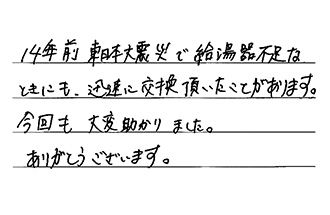 14年前東日本大震災で給湯器不足な
ときにも、迅速に交換頂いたことがあります。
今回も大変助かりました。
ありがとうございます。